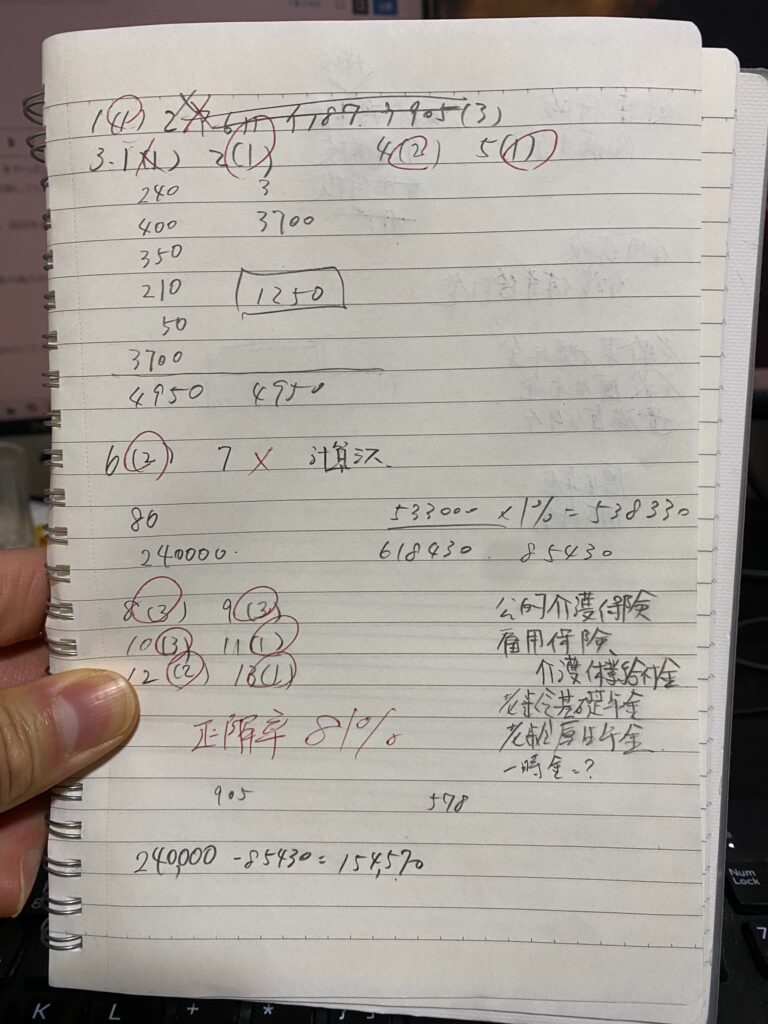 1(4) 2
3.1(1) 2(1) 4(2) 5(1)
240 3
400 3700
350
210 1250
50
3700
4950 4950
6(2) 7 × 計算ミス
80 533000 × 1% = 538330
240000. 618430 85430
8(3) 9(3) 公的介護保険
10(3) 11(1) 雇用保険
12(2) 13(1) 介護休業給付金
老齢基礎年金
正解率 81% 老齢厚生年金
一時金=?
905 578
240,000 - 85430 = 154,570
Num Lock
7
K L +